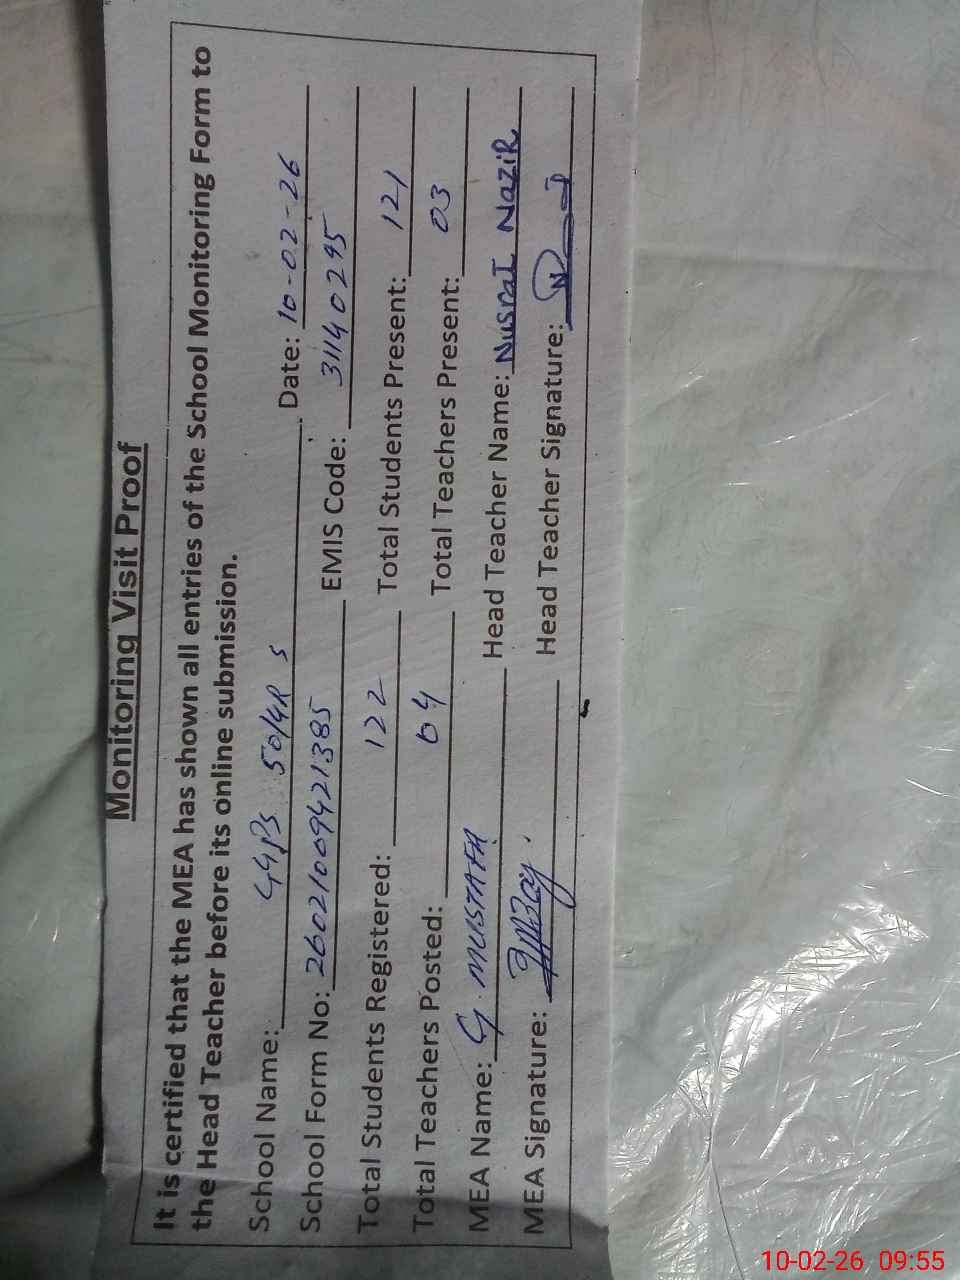 Monitoring Visit Proof
It is certified that the MEA has shown all entries of the School Monitoring Form to
the Head Teacher before its online submission.
School Name: GGPS 50/4R S Date: 10-02-26
School Form No: 26021009421385 EMIS Code: 31140295
Total Students Registered: 122 Total Students Present: 121
Total Teachers Posted: 04 Total Teachers Present: 03
MEA Name: G. MUSTAFA Head Teacher Name: Nusrat Nazir
MEA Signature: Head Teacher Signature:
10-02-26 09:55